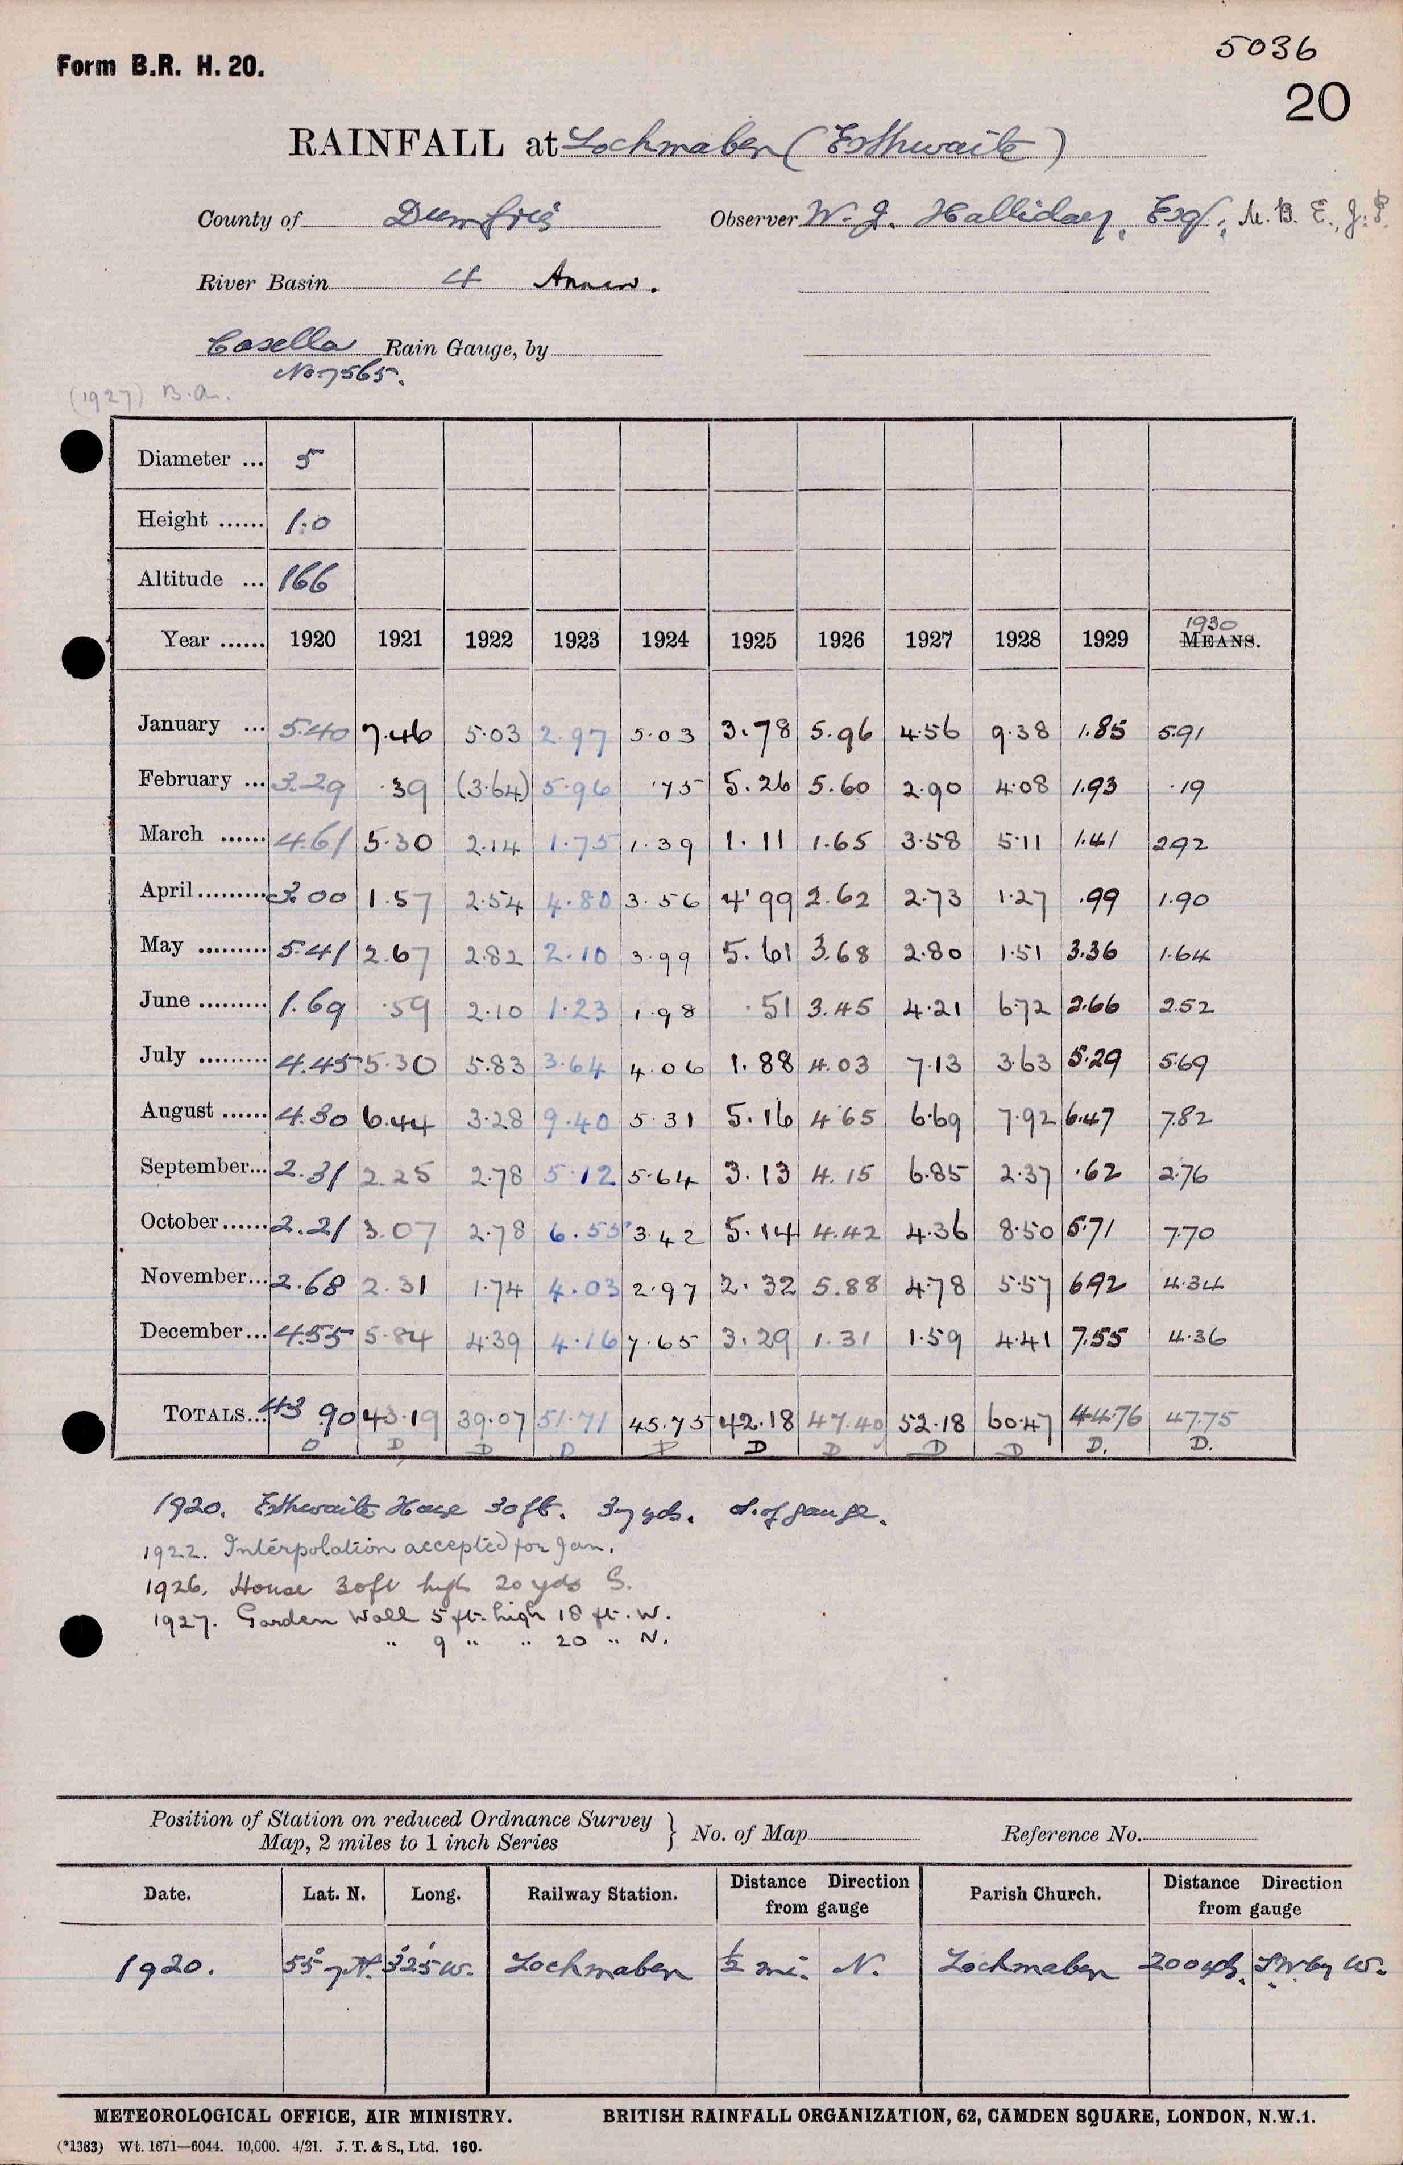 Form B.R. H. 20.
5036
20
RAINFALL at Lochmaben (Esthwaite)
County of Dumfries Observer W. J. Halliday, Esq., M.B.E., J.P.
River Basin 4 Annan.
Casella Rain Gauge, by
No 7565.
(1927) B.A.
Diameter ... 5
Height ...... 1.0
Altitude ... 166
Year ...... 1920 1921 1922 1923 1924 1925 1926 1927 1928 1929 1930 MEANS.
January ... 5.40 7.46 5.03 2.97 5.03 3.78 5.96 4.56 9.38 1.85 5.91
February ... 3.29 .39 (3.64) 5.96 .75 5.26 5.60 2.90 4.08 1.93 .19
March ...... 4.61 5.30 2.14 1.75 1.39 1.11 1.65 3.58 5.11 1.41 2.92
April ......... 3.00 1.57 2.54 4.80 3.56 4.99 2.62 2.73 1.27 .99 1.90
May ......... 5.41 2.67 2.82 2.10 3.99 5.61 3.68 2.80 1.51 3.36 1.64
June ......... 1.69 .59 2.10 1.23 1.98 .51 3.45 4.21 6.72 2.66 2.52
July ......... 4.45 5.30 5.83 3.64 4.06 1.88 4.03 7.13 3.63 5.29 5.69
August ...... 4.30 6.44 3.28 9.40 5.31 5.16 4.65 6.69 7.92 6.47 7.82
September... 2.31 2.25 2.78 5.12 5.64 3.13 4.15 6.85 2.37 .62 2.76
October...... 2.21 3.07 2.78 6.55 3.42 5.14 4.42 4.36 8.50 5.71 7.70
November... 2.68 2.31 1.74 4.03 2.97 2.32 5.88 4.78 5.57 6.92 4.34
December... 4.55 5.84 4.39 4.16 7.65 3.29 1.31 1.59 4.41 7.55 4.36
TOTALS... 43.90 43.19 39.07 51.71 45.75 42.18 47.40 52.18 60.47 44.76 47.75
D D D D D D D D D D. D.
1920. Esthwaite House 30ft. 37 yds. S. of gauge.
1922. Interpolation accepted for Jan.
1926. House 30ft high 20 yds S.
1927. Garden Wall 5 ft. high 18 ft. W.
" 9 " " 20 " N.
Position of Station on reduced Ordnance Survey
Map, 2 miles to 1 inch Series } No. of Map Reference No.
Date. Lat. N. Long. Railway Station. Distance Direction from gauge Parish Church. Distance Direction from gauge
1920. 55° 7' N. 3° 25' W. Lochmaben ½ mi. N. Lochmaben 200 yds. S.W. by W.
METEOROLOGICAL OFFICE, AIR MINISTRY. BRITISH RAINFALL ORGANIZATION, 62, CAMDEN SQUARE, LONDON, N.W.1.
(*1383) Wt. 1671—6044. 10,000. 4/21. J. T. & S., Ltd. 160.